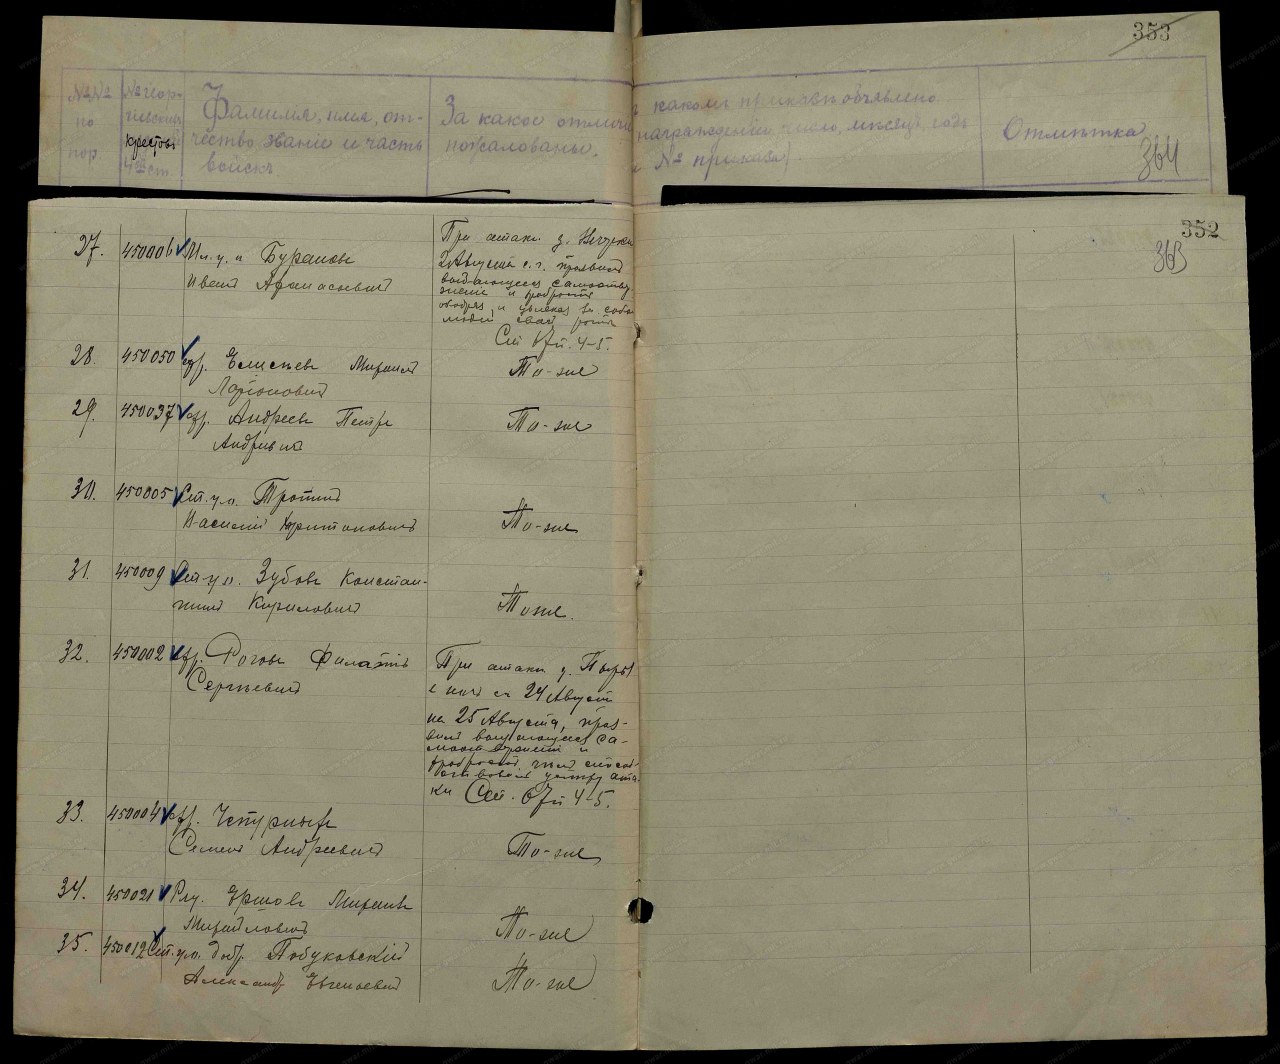 353
№№ по пор.
№ Георгиевск. крестов 4й ст.
Фамилія, имя, от-
чество званіе и часть
войскъ
За какое отличіе
пожалованы.
какомъ приказѣ объявлено
награжденіи число, мѣсяцъ, годъ
и № приказа).
Отмѣтка
364
352
363
27. 450006 Мл. у. о Бураковъ
Иванъ Афанасьевичъ
При атакѣ д.
2 Августа с. г. проявилъ
выдающееся самоотвер-
женіе и храбрость
ободрял, и увлекал за собой
людей своей роты
Ст. 67 п. 4-5.
28. 450050 ефр. Елисѣевъ Михаилъ
Ларіоновичъ
То-же
29. 450037 ефр. Андреевъ Петръ
Андреевичъ
То-же
30. 450005 Ст. у. о. Тропинъ
Василій Харитоновичъ
То-же
31. 450009 Ст. у. о. Зубовъ Констан-
тинъ Кириловичъ
Тоже.
32. 450002 ефр. Роговъ Филатій
Сергѣевичъ
При атакѣ д.
в ночь съ 24 Август
на 25 Августа, проя-
вилъ выдающееся са-
моотверженіе и
храбрость, чѣмъ способ-
ствовалъ успѣху ата-
ки Ст. 67 п 4-5.
33. 450004 ефр. Чепурныхъ
Семенъ Андреевичъ
То-же
34. 450021 Ряд. Ершовъ Михаилъ
Михайловичъ
То-же
35. 450012 Ст. у. о. добр. Побуковскій
Александръ Евгеньевичъ
То-же